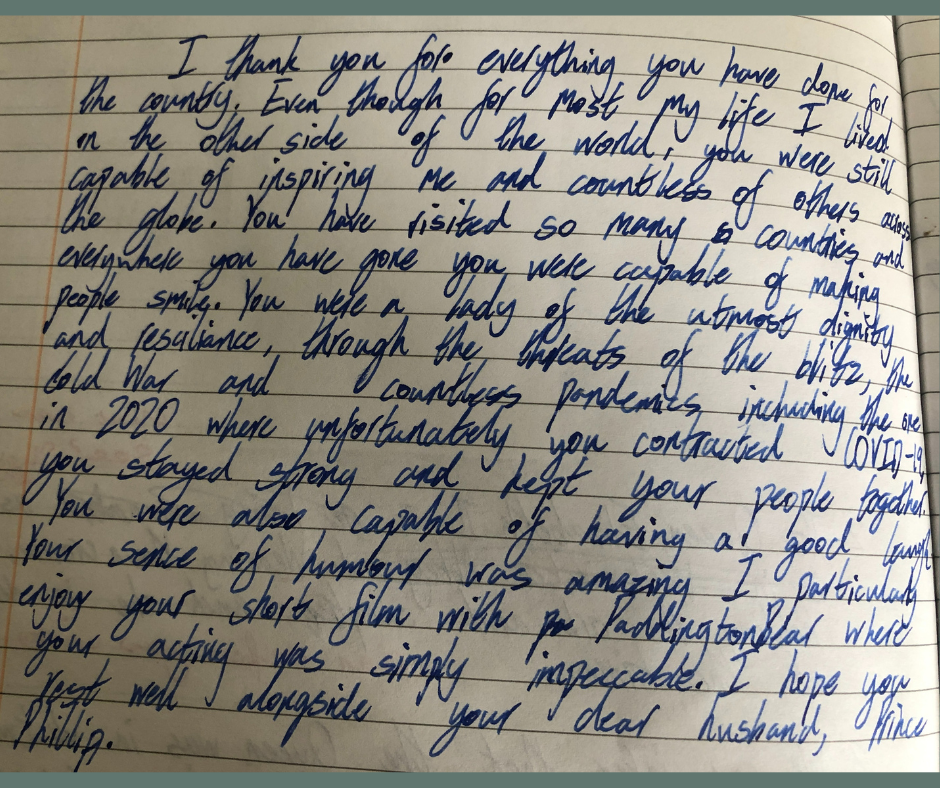 I thank you for everything you have done for
the country. Even though for most my life I lived
on the other side of the world, you were still
capable of inspiring me and countless of others across
the globe. You have visited so many countries and
everywhere you have gone you were capable of making
people smile. You were a lady of the utmost dignity
and resiliance, through the threats of the blitz, the
Cold War and countless pandemics including the one
in 2020 where unfortunately you contracted COVID-19
you stayed strong and kept your people together.
You were also capable of having a good laugh
Your sence of humour was amazing I particularly
enjoy your short film with Paddington Bear where
your acting was simply impeccable. I hope you
rest well alongside your dear husband, Prince
Phillip.